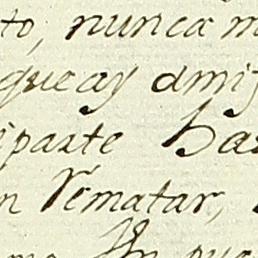 to, nunca m
que ay amis
iparte has
n rematar,